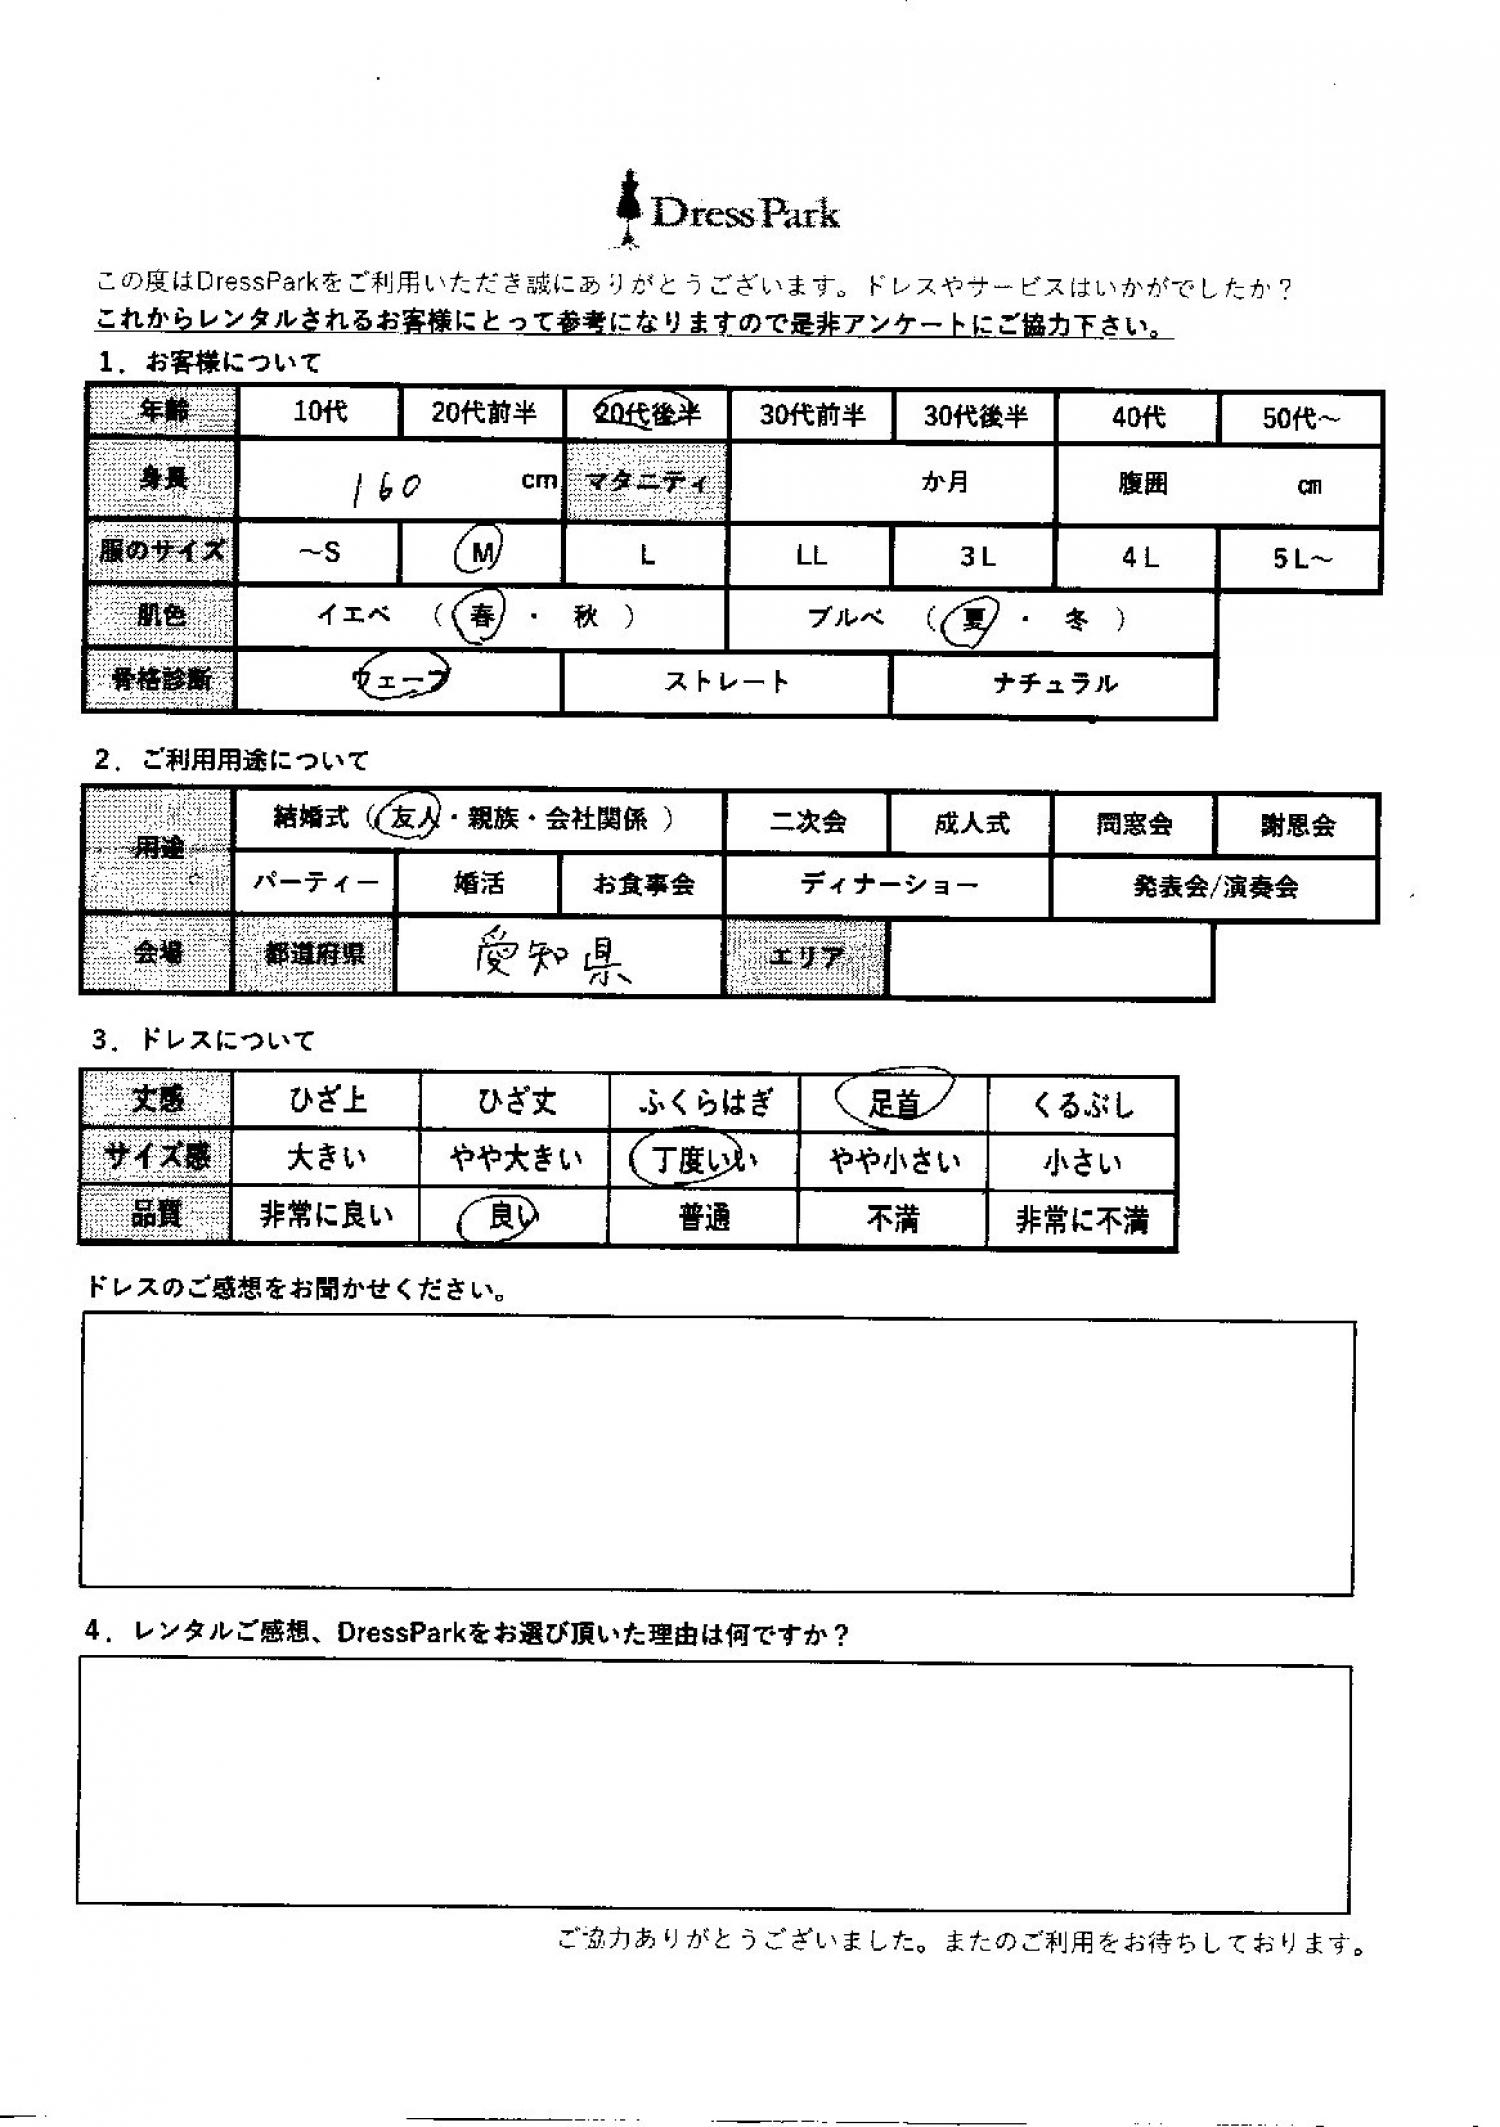 DressPark
この度はDressParkをご利用いただき誠にありがとうございます。ドレスやサービスはいかがでしたか？
これからレンタルされるお客様にとって参考になりますので是非アンケートにご協力下さい。
1．お客様について
年齢 10代 20代前半 20代後半 30代前半 30代後半 40代 50代～
身長 160 cm マタニティ か月 腹囲 cm
服のサイズ ～S M L LL 3L 4L 5L～
肌色 イエベ （ 春 ・ 秋 ） ブルベ （ 夏 ・ 冬 ）
骨格診断 ウェーブ ストレート ナチュラル
2．ご利用用途について
用途 結婚式（ 友人・親族・会社関係 ） 二次会 成人式 同窓会 謝恩会
パーティー 婚活 お食事会 ディナーショー 発表会/演奏会
会場 都道府県 愛知県 エリア
3．ドレスについて
丈感 ひざ上 ひざ丈 ふくらはぎ 足首 くるぶし
サイズ感 大きい やや大きい 丁度いい やや小さい 小さい
品質 非常に良い 良い 普通 不満 非常に不満
ドレスのご感想をお聞かせください。
4．レンタルご感想、DressParkをお選び頂いた理由は何ですか？
ご協力ありがとうございました。またのご利用をお待ちしております。